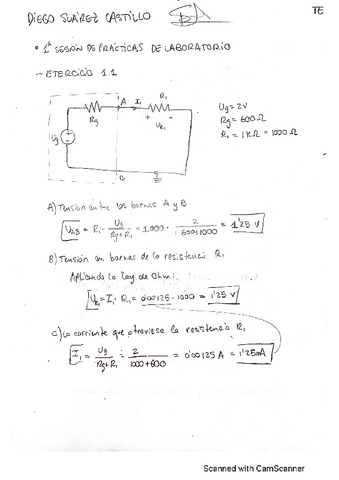 DIEGO SUÁREZ CASTILLO
TE
• 1ª SESIÓN DE PRÁCTICAS DE LABORATORIO
- EJERCICIO 1.1
A I₁ R₁
Rg + -
UR₁
Ug
B
Ug = 2V
Rg = 600Ω
R₁ = 1KΩ = 1000Ω
A) Tensión entre los bornes A y B
UAB = R₁ · Ug / (Rg+R₁) = 1.000 · 2 / (600+1000) = 1'25 V
B) Tensión en bornes de la resistencia R₁
Aplicando la Ley de Ohm:
UR₁ = I₁ · R₁ = 0'00125 · 1000 = 1'25 V
C) La corriente que atraviesa la resistencia R₁
I₁ = Ug / (Rg+R₁) = 2 / (1000+600) = 0'00125 A = 1'25mA
Scanned with CamScanner